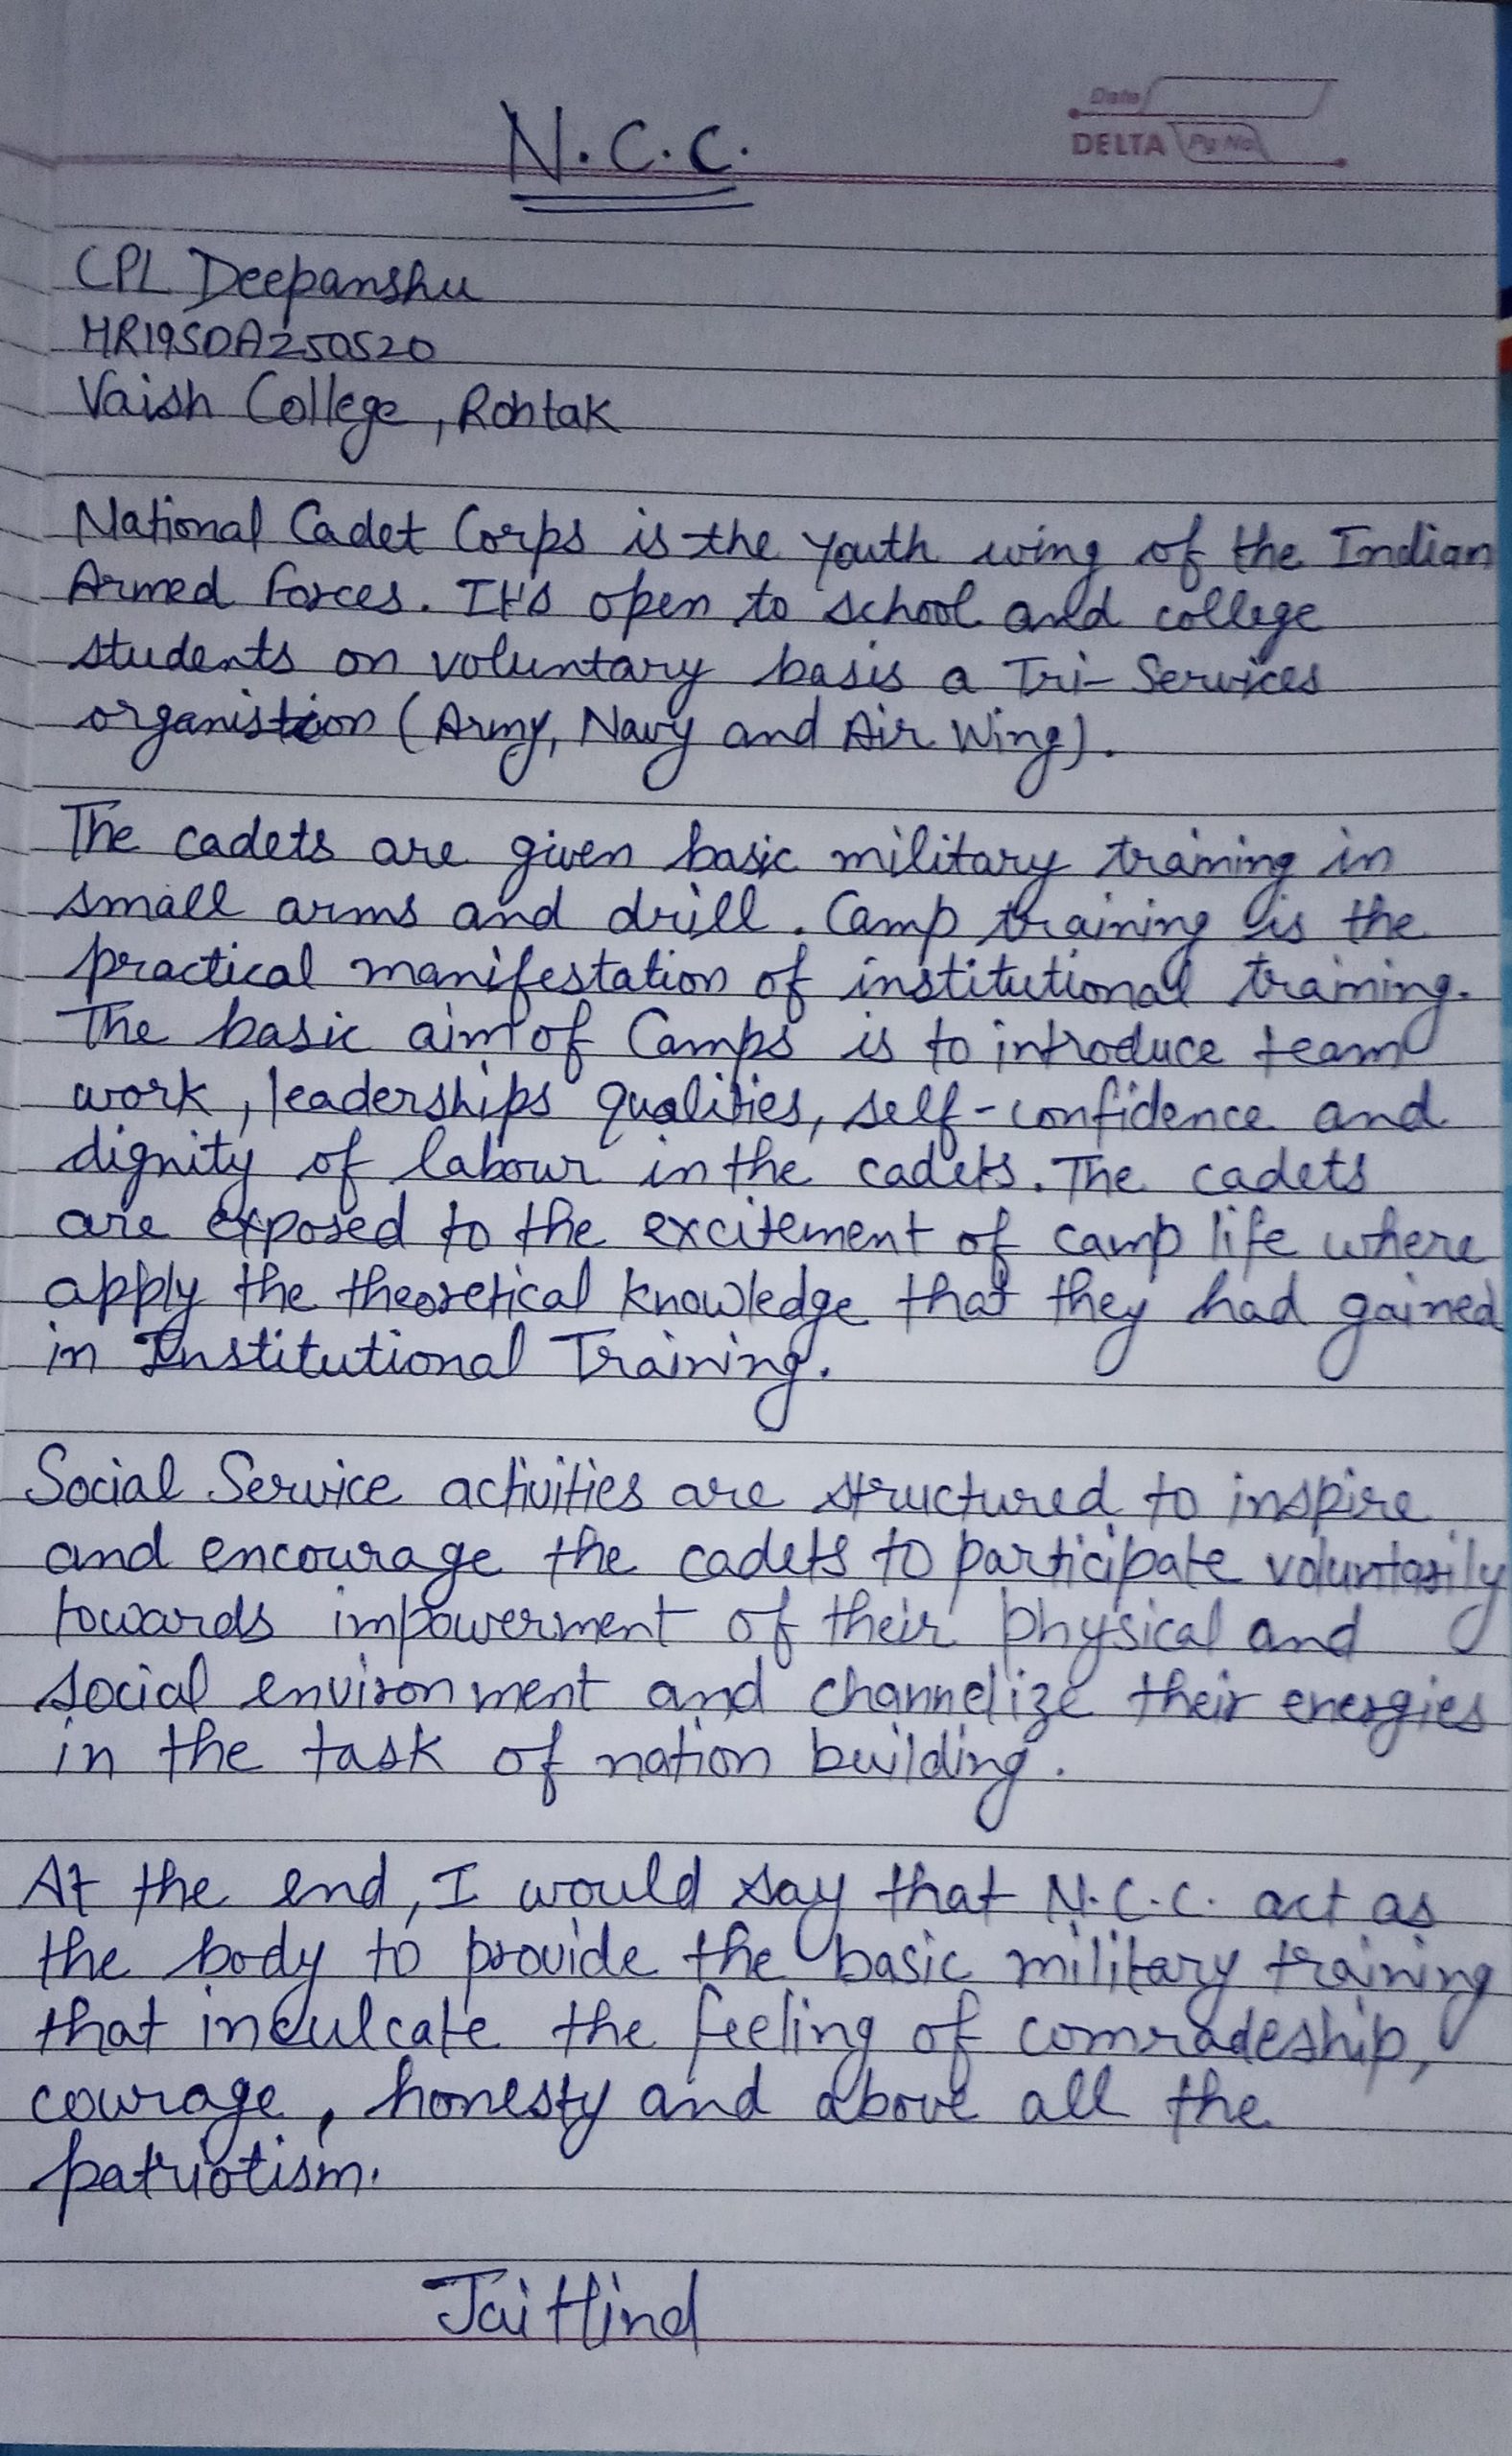 Date
N.C.C.
DELTA Pg No.
CPL Deepanshu
HR19SDA250520
Vaish College, Rohtak
National Cadet Corps is the Youth wing of the Indian
Armed Forces. It's open to school and college
students on voluntary basis a Tri-Services
organistion (Army, Navy and Air Wing).
The cadets are given basic military training in
small arms and drill. Camp training is the
practical manifestation of institutional training.
The basic aim of Camps is to introduce team
work, leaderships qualities, self-confidence and
dignity of labour in the cadets. The cadets
are exposed to the excitement of camp life where
apply the theoretical knowledge that they had gained
in Institutional Training.
Social Service activities are structured to inspire
and encourage the cadets to participate voluntarily
towards impowerment of their physical and
social environment and channelize their energies
in the task of nation building.
At the end, I would say that N.C.C. act as
the body to provide the basic military training
that inculcate the feeling of comradeship,
courage, honesty and above all the
patriotism.
Jai Hind